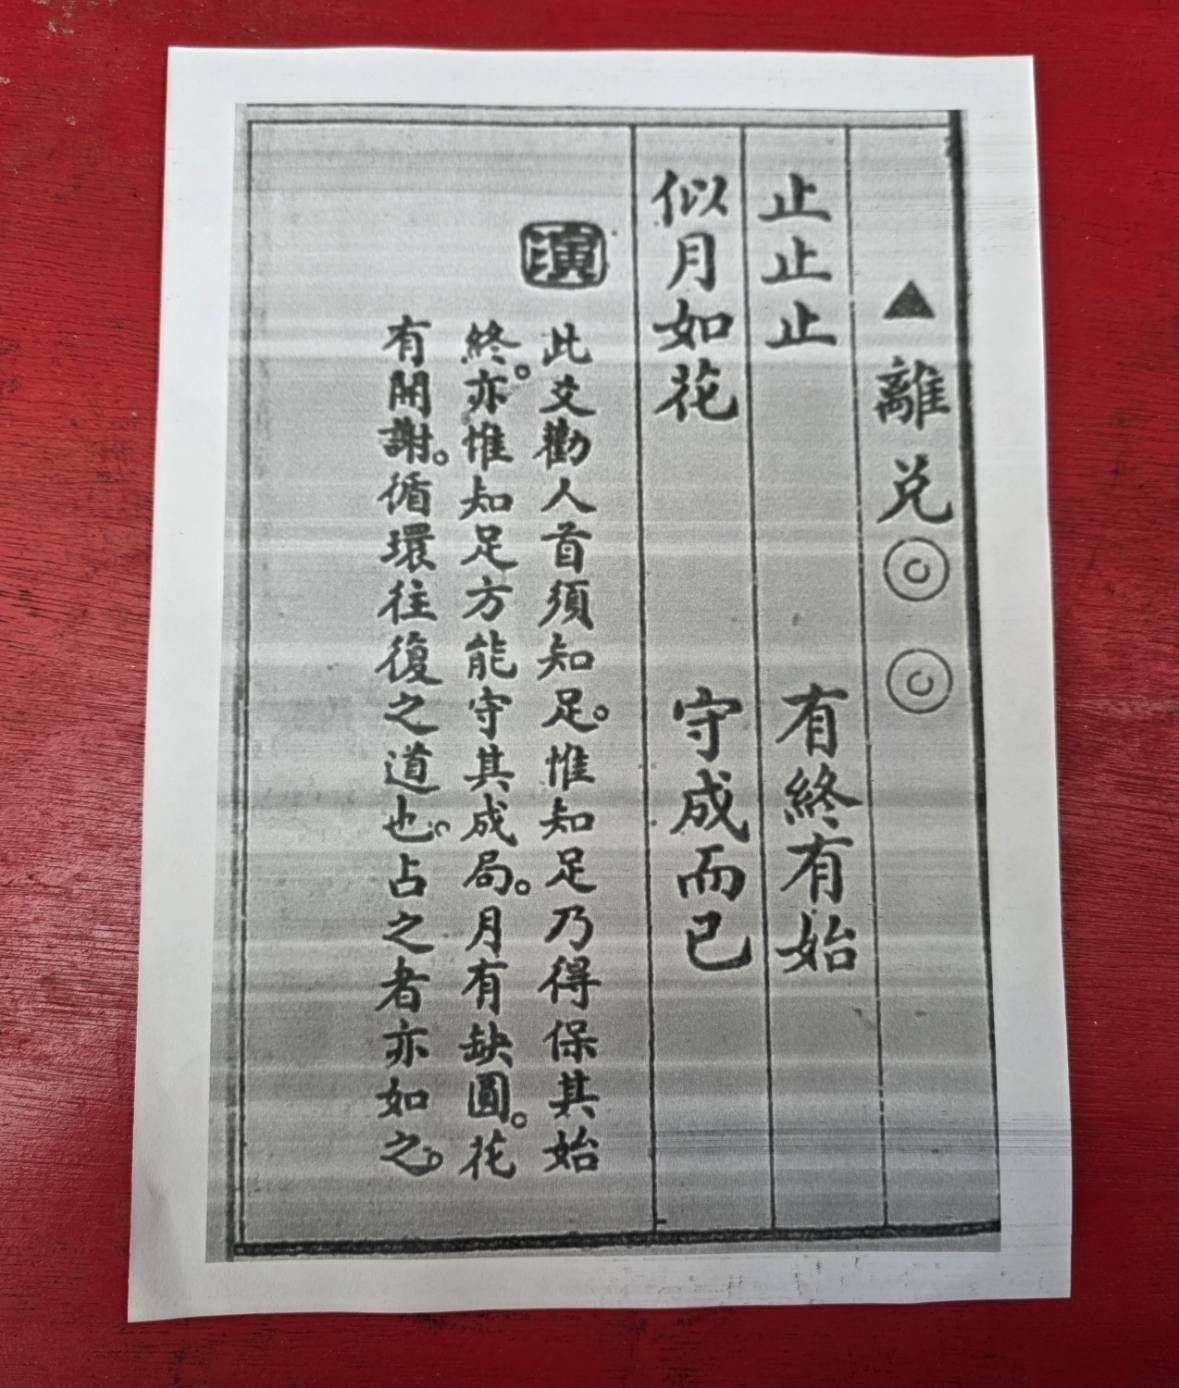 ▲離兌◎◎
止止止　有終有始
似月如花　守成而已
演
此爻勸人首須知足。惟知足乃得保其始
終。亦惟知足方能守其成局。月有缺圓。花
有開謝。循環往復之道也。占之者亦如之。